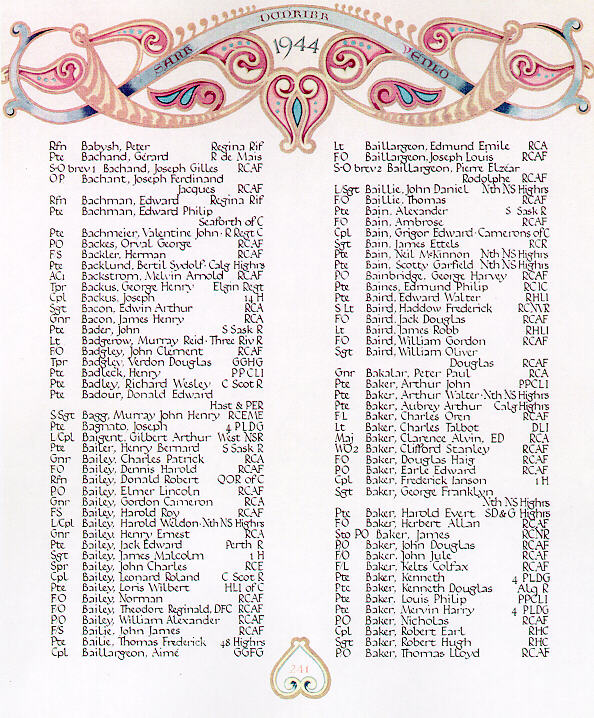 SAAR
DONRIBR
VENLO
1944
Rfn Babysh, Peter Regina Rif
Pte Bachand, Gérard R de Mais
S-O brev1 Bachand, Joseph Gilles RCAF
OP Bachant, Joseph Ferdinand
Jacques RCAF
Rfn Bachman, Edward Regina Rif
Pte Bachman, Edward Philip
Seaforth of C
Pte Bachmeier, Valentine John · R Regt C
PO Backes, Orval George RCAF
FS Backler, Herman RCAF
Pte Backlund, Bertil Sydolf · Calg Highrs
AC1 Backstrom, Melvin Arnold RCAF
Tpr Backus, George Henry Elgin Regt
Cpl Backus, Joseph 14 H
Sgt Bacon, Edwin Arthur RCA
Gnr Bacon, James Henry RCA
Pte Bader, John S Sask R
Lt Badgerow, Murray Reid · Three Riv R
FO Badgley, John Clement RCAF
Tpr Badgley, Verdon Douglas GGHG
Pte Badleck, Henry PPCLI
Pte Badley, Richard Wesley C Scot R
Pte Badour, Donald Edward
Hast & PER
S Sgt Bagg, Murray John Henry RCEME
Pte Bagnato, Joseph 4 PLDG
L Cpl Baigent, Gilbert Arthur West NSR
Pte Bailer, Henry Bernard S Sask R
Gnr Bailey, Charles Patrick RCA
FO Bailey, Dennis Harold RCAF
Rfn Bailey, Donald Robert QOR of C
PO Bailey, Elmer Lincoln RCAF
Gnr Bailey, Gordon Cameron RCA
FS Bailey, Harold Roy RCAF
L/Cpl Bailey, Harold Weldon · Nth NS Highrs
Gnr Bailey, Henry Ernest RCA
Pte Bailey, Jack Edward Perth R
Sgt Bailey, James Malcolm 1 H
Spr Bailey, John Charles RCE
Cpl Bailey, Leonard Roland C Scot R
Pte Bailey, Loris Wilbert HLI of C
FO Bailey, Norman RCAF
F/O Bailey, Theodore Reginald, DFC RCAF
PO Bailey, William Alexander RCAF
F/S Bailie, John James RCAF
Pte Bailie, Thomas Frederick 48 Highrs
Cpl Baillargeon, Aimé GGFG
Lt Baillargeon, Edmund Emile RCA
FO Baillargeon, Joseph Louis RCAF
S-O brev2 Baillargeon, Pierre Elzéar
Rodolphe RCAF
L/Sgt Baillie, John Daniel Nth NS Highrs
F/O Baillie, Thomas RCAF
Pte Bain, Alexander S Sask R
FO Bain, Ambrose RCAF
Cpl Bain, Grigor Edward · Camerons of C
Sgt Bain, James Ettels RCR
Pte Bain, Neil McKinnon Nth NS Highrs
Pte Bain, Scotty Garfield Nth NS Highrs
PO Bainbridge, George Harvey RCAF
Pte Baines, Edmund Philip RCIC
Pte Baird, Edward Walter RHLI
S Lt Baird, Haddow Frederick RCNVR
FO Baird, Jack Douglas RCAF
Lt Baird, James Robb RHLI
FO Baird, William Gordon RCAF
Sgt Baird, William Oliver
Douglas RCAF
Gnr Bakalar, Peter Paul RCA
Pte Baker, Arthur John PPCLI
Pte Baker, Arthur Walter · Nth NS Highrs
Pte Baker, Aubrey Arthur Calg Highrs
F L Baker, Charles Oren RCAF
Lt Baker, Charles Talbot DLI
Maj Baker, Clarence Alvin, ED RCA
WO2 Baker, Clifford Stanley RCAF
FO Baker, Douglas Haig RCAF
PO Baker, Earle Edward RCAF
Cpl Baker, Frederick Janson 1 H
Sgt Baker, George Franklyn
Nth NS Highrs
Pte Baker, Harold Evert SD&G Highrs
FO Baker, Herbert Allan RCAF
Sto PO Baker, James RCNR
PO Baker, John Douglas RCAF
F/O Baker, John Jule RCAF
F/L Baker, Kelts Colfax RCAF
Pte Baker, Kenneth 4 PLDG
Pte Baker, Kenneth Douglas Alg R
Pte Baker, Louis Philip PPCLI
Pte Baker, Mervin Harry 4 PLDG
PO Baker, Nicholas RCAF
Cpl Baker, Robert Earl RHC
Sgt Baker, Robert Hugh RHC
PO Baker, Thomas Lloyd RCAF
241